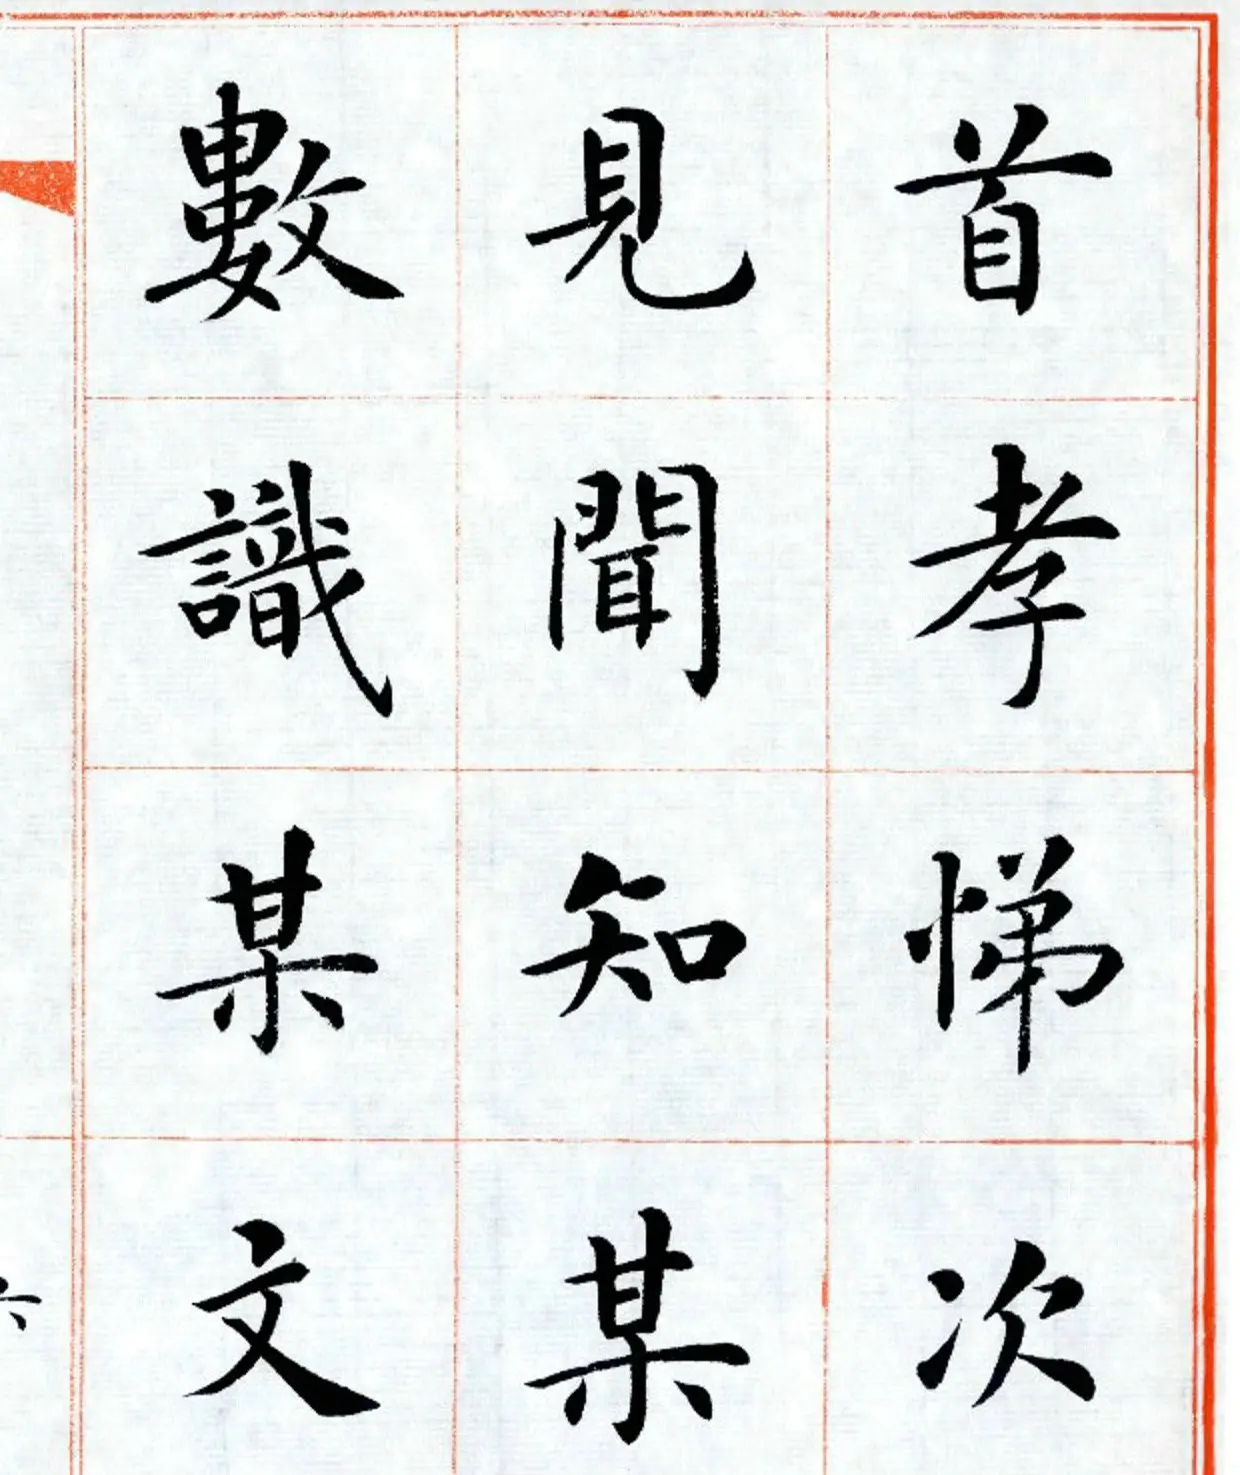 首孝悌次
見聞知某
數識某文
六